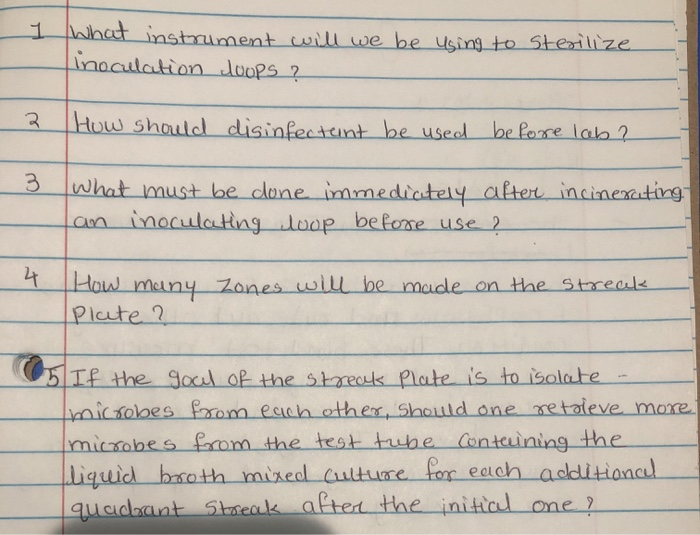 1 What instrument will we be using to sterilize
inoculation loops ?
2 How should disinfectant be used before lab ?
3 What must be done immediately after incinerating
an inoculating loop before use ?
4 How many zones will be made on the streak
Plate ?
5 If the goal of the streak Plate is to isolate -
microbes from each other, should one retrieve more
microbes from the test tube containing the
liquid broth mixed culture for each additional
quadrant streak after the initial one ?